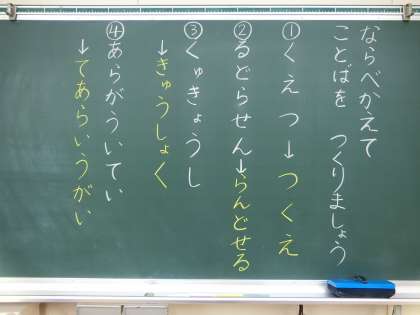 ならべかえて
ことばを つくりましょう
①くえつ↓つくえ
②るどらせん↓らんどせる
③くゅきょうし
↓きゅうしょく
④あらがういてい
↓てあらいうがい